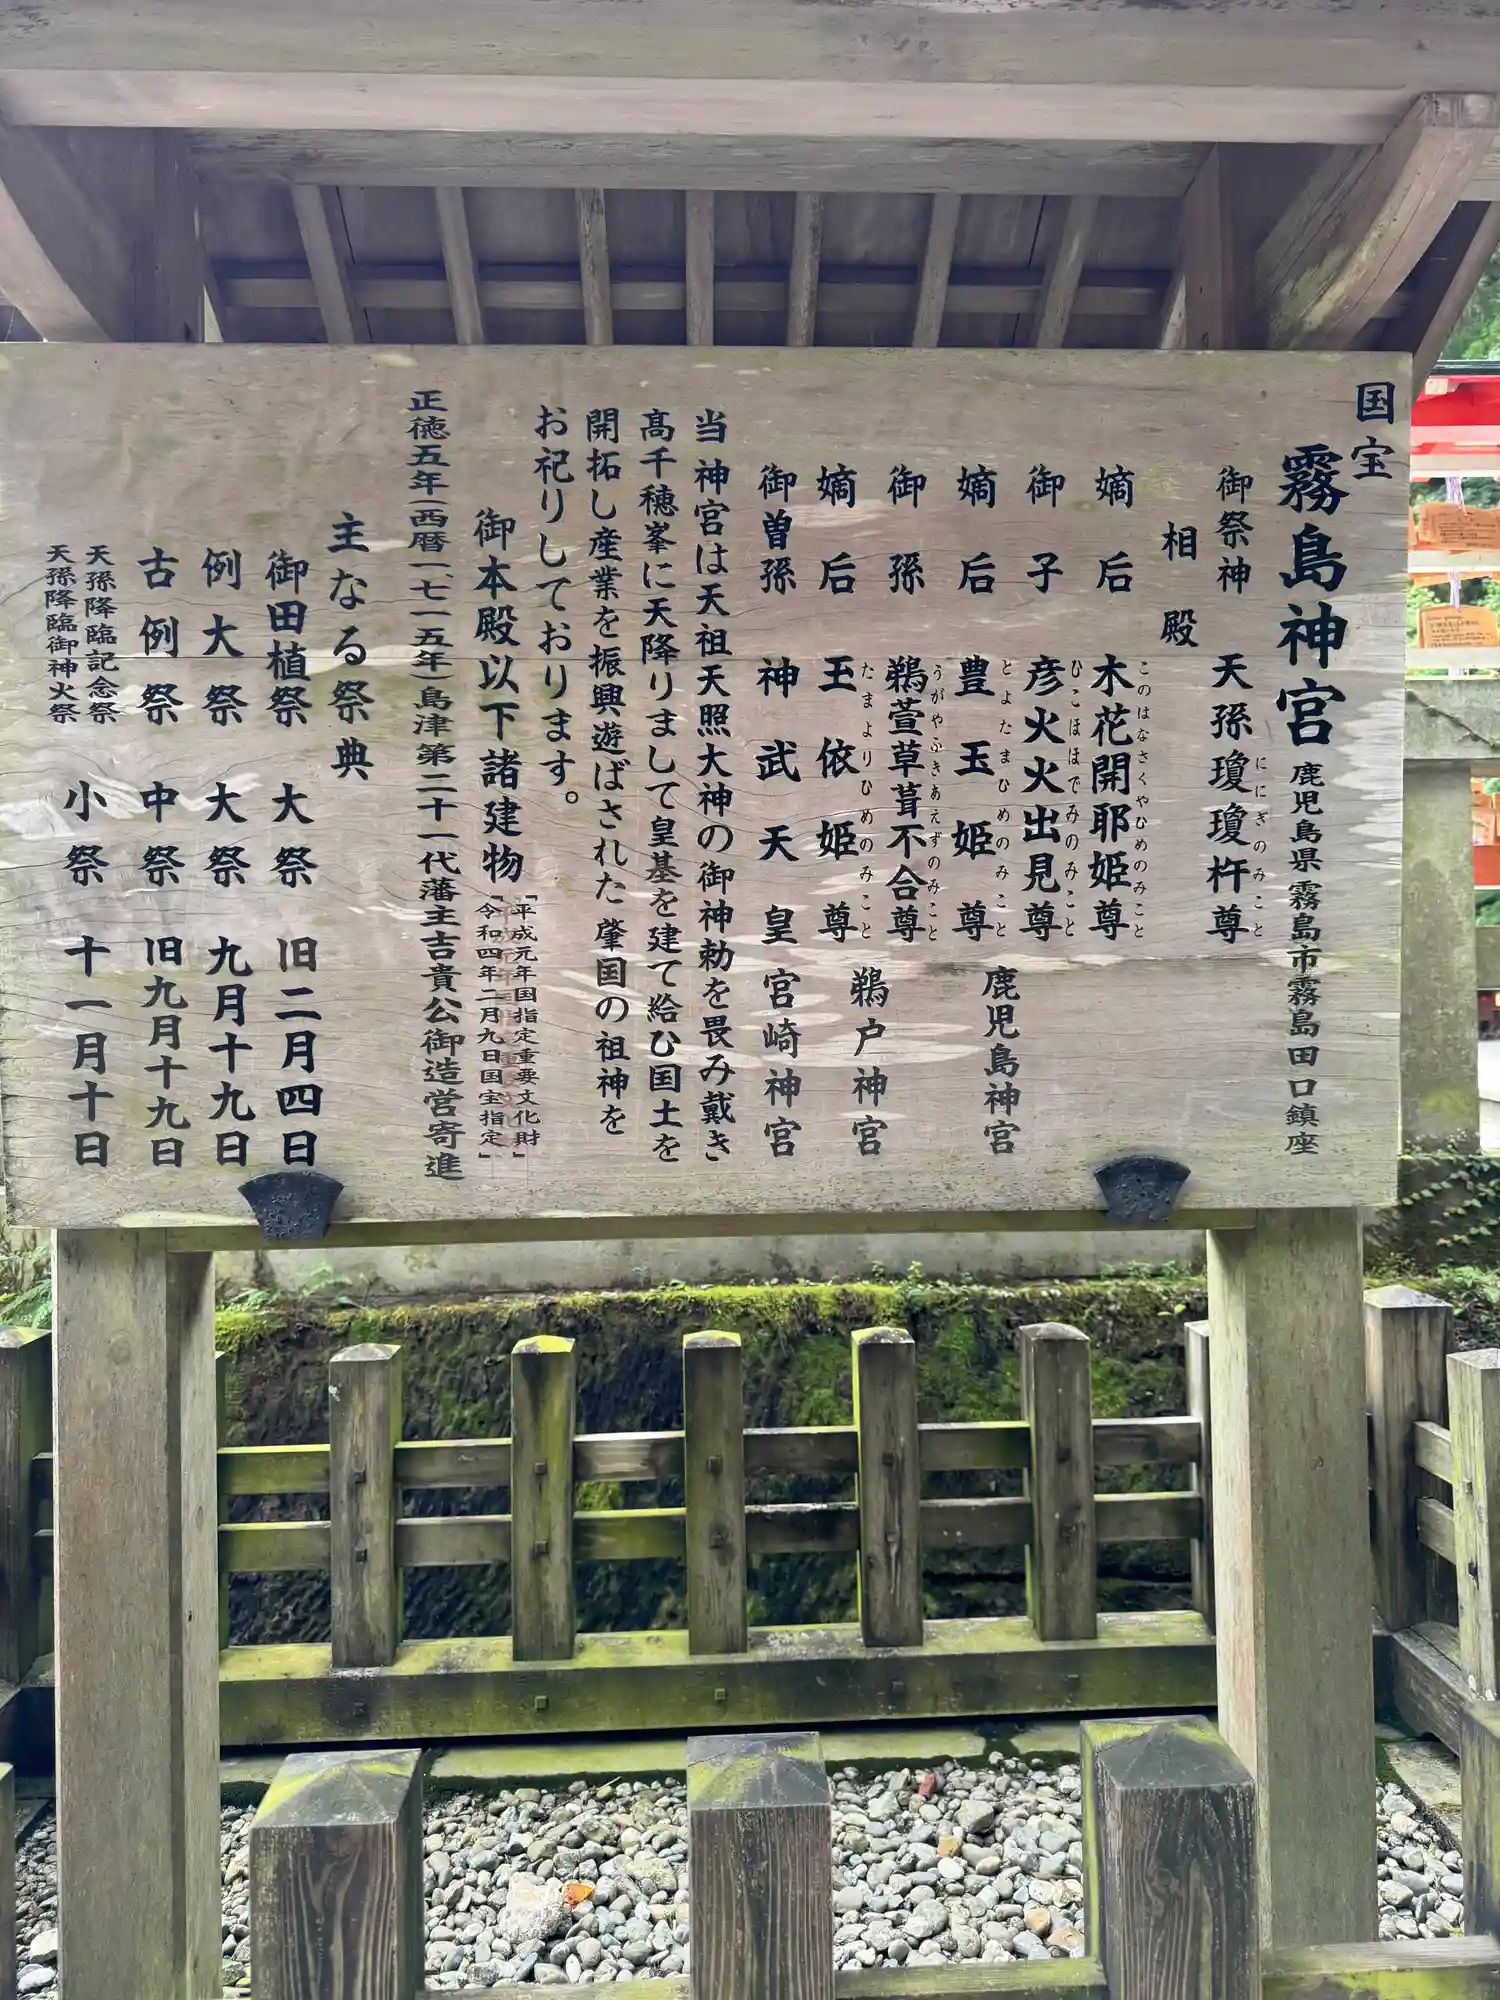 国宝
霧島神宮 鹿児島県霧島市霧島田口鎮座
御祭神 天孫瓊瓊杵尊
ににぎのみこと
相殿
嫡后 木花開耶姫尊
このはなさくやひめのみこと
御子 彦火火出見尊
ひこほほでみのみこと
嫡后 豊玉姫尊 鹿児島神宮
とよたまひめのみこと
御孫 鵜萱草葺不合尊
うがやふきあえずのみこと
嫡后 玉依姫尊 鵜戸神宮
たまよりひめのみこと
御曽孫 神武天皇 宮崎神宮
当神宮は天祖天照大神の御神勅を畏み戴き
高千穂峯に天降りまして皇基を建て給ひ国土を
開拓し産業を振興遊ばされた肇国の祖神を
お祀りしております。
御本殿以下諸建物
「平成元年国指定重要文化財」
「令和四年二月九日国宝指定」
正徳五年(西暦一七一五年)島津第二十一代藩主吉貴公御造営寄進
主なる祭典
御田植祭 大祭 旧二月四日
例大祭 大祭 九月十九日
古例祭 中祭 旧九月十九日
天孫降臨記念祭
天孫降臨御神火祭
小祭 十一月十日